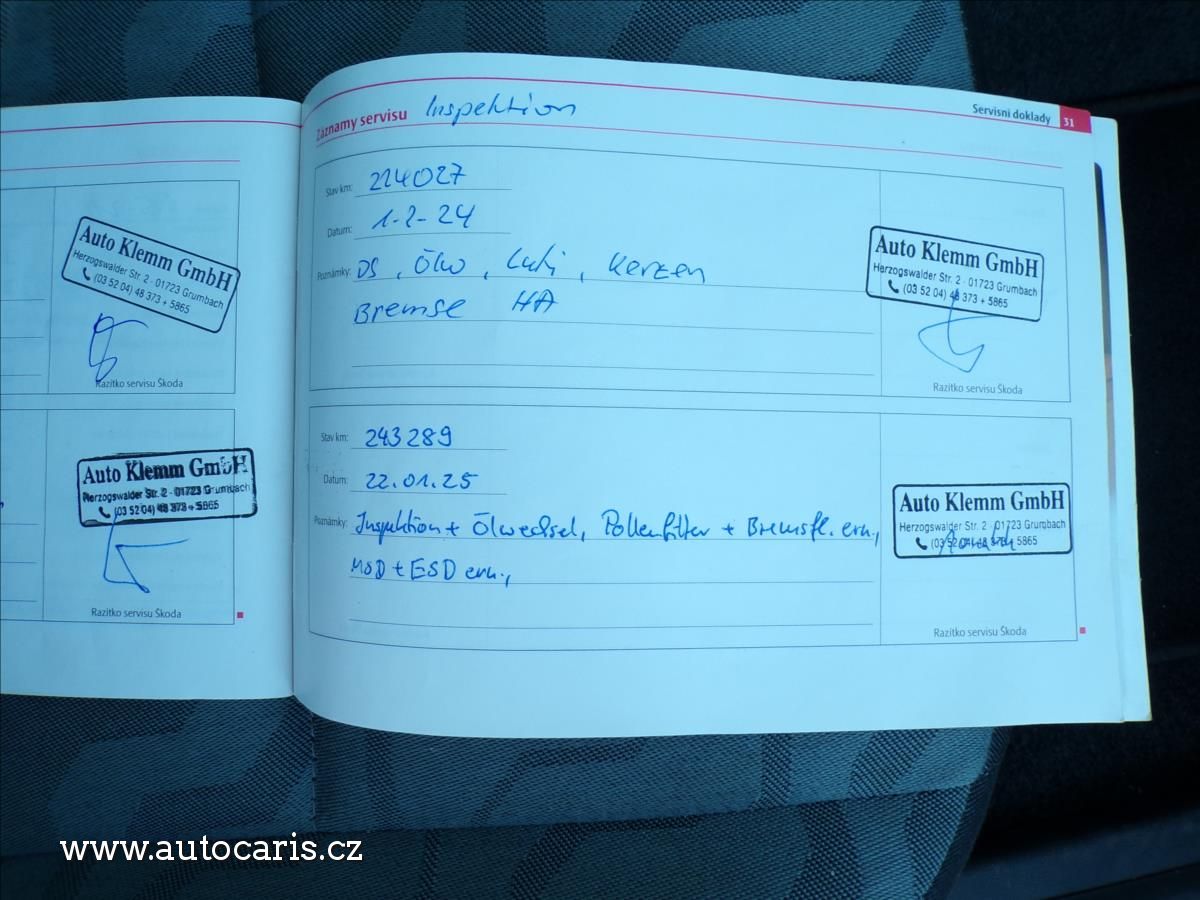 Auto Klemm GmbH
Herzogswalder Str. 2 · 01723 Grumbach
(03 52 04) 48 373 + 5865
Razítko servisu Škoda
Auto Klemm GmbH
Herzogswalder Str. 2 · 01723 Grumbach
(03 52 04) 48 373 + 5865
Razítko servisu Škoda
Záznamy servisu Inspektion
Servisní doklady 31
Stav km: 224027
Datum: 1-2-24
Poznámky: DS, Ölw, Luft, Kerzen
Bremse HA
Auto Klemm GmbH
Herzogswalder Str. 2 · 01723 Grumbach
(03 52 04) 48 373 + 5865
Razítko servisu Škoda
Stav km: 243289
Datum: 22.01.25
Poznámky: Inspektion + Ölwechsel, Pollenfilter + Bremsfl. ern.,
MSD + ESD ern.,
Auto Klemm GmbH
Herzogswalder Str. 2 · 01723 Grumbach
(03 52 04) 48 373 + 5865
Razítko servisu Škoda
www.autocaris.cz